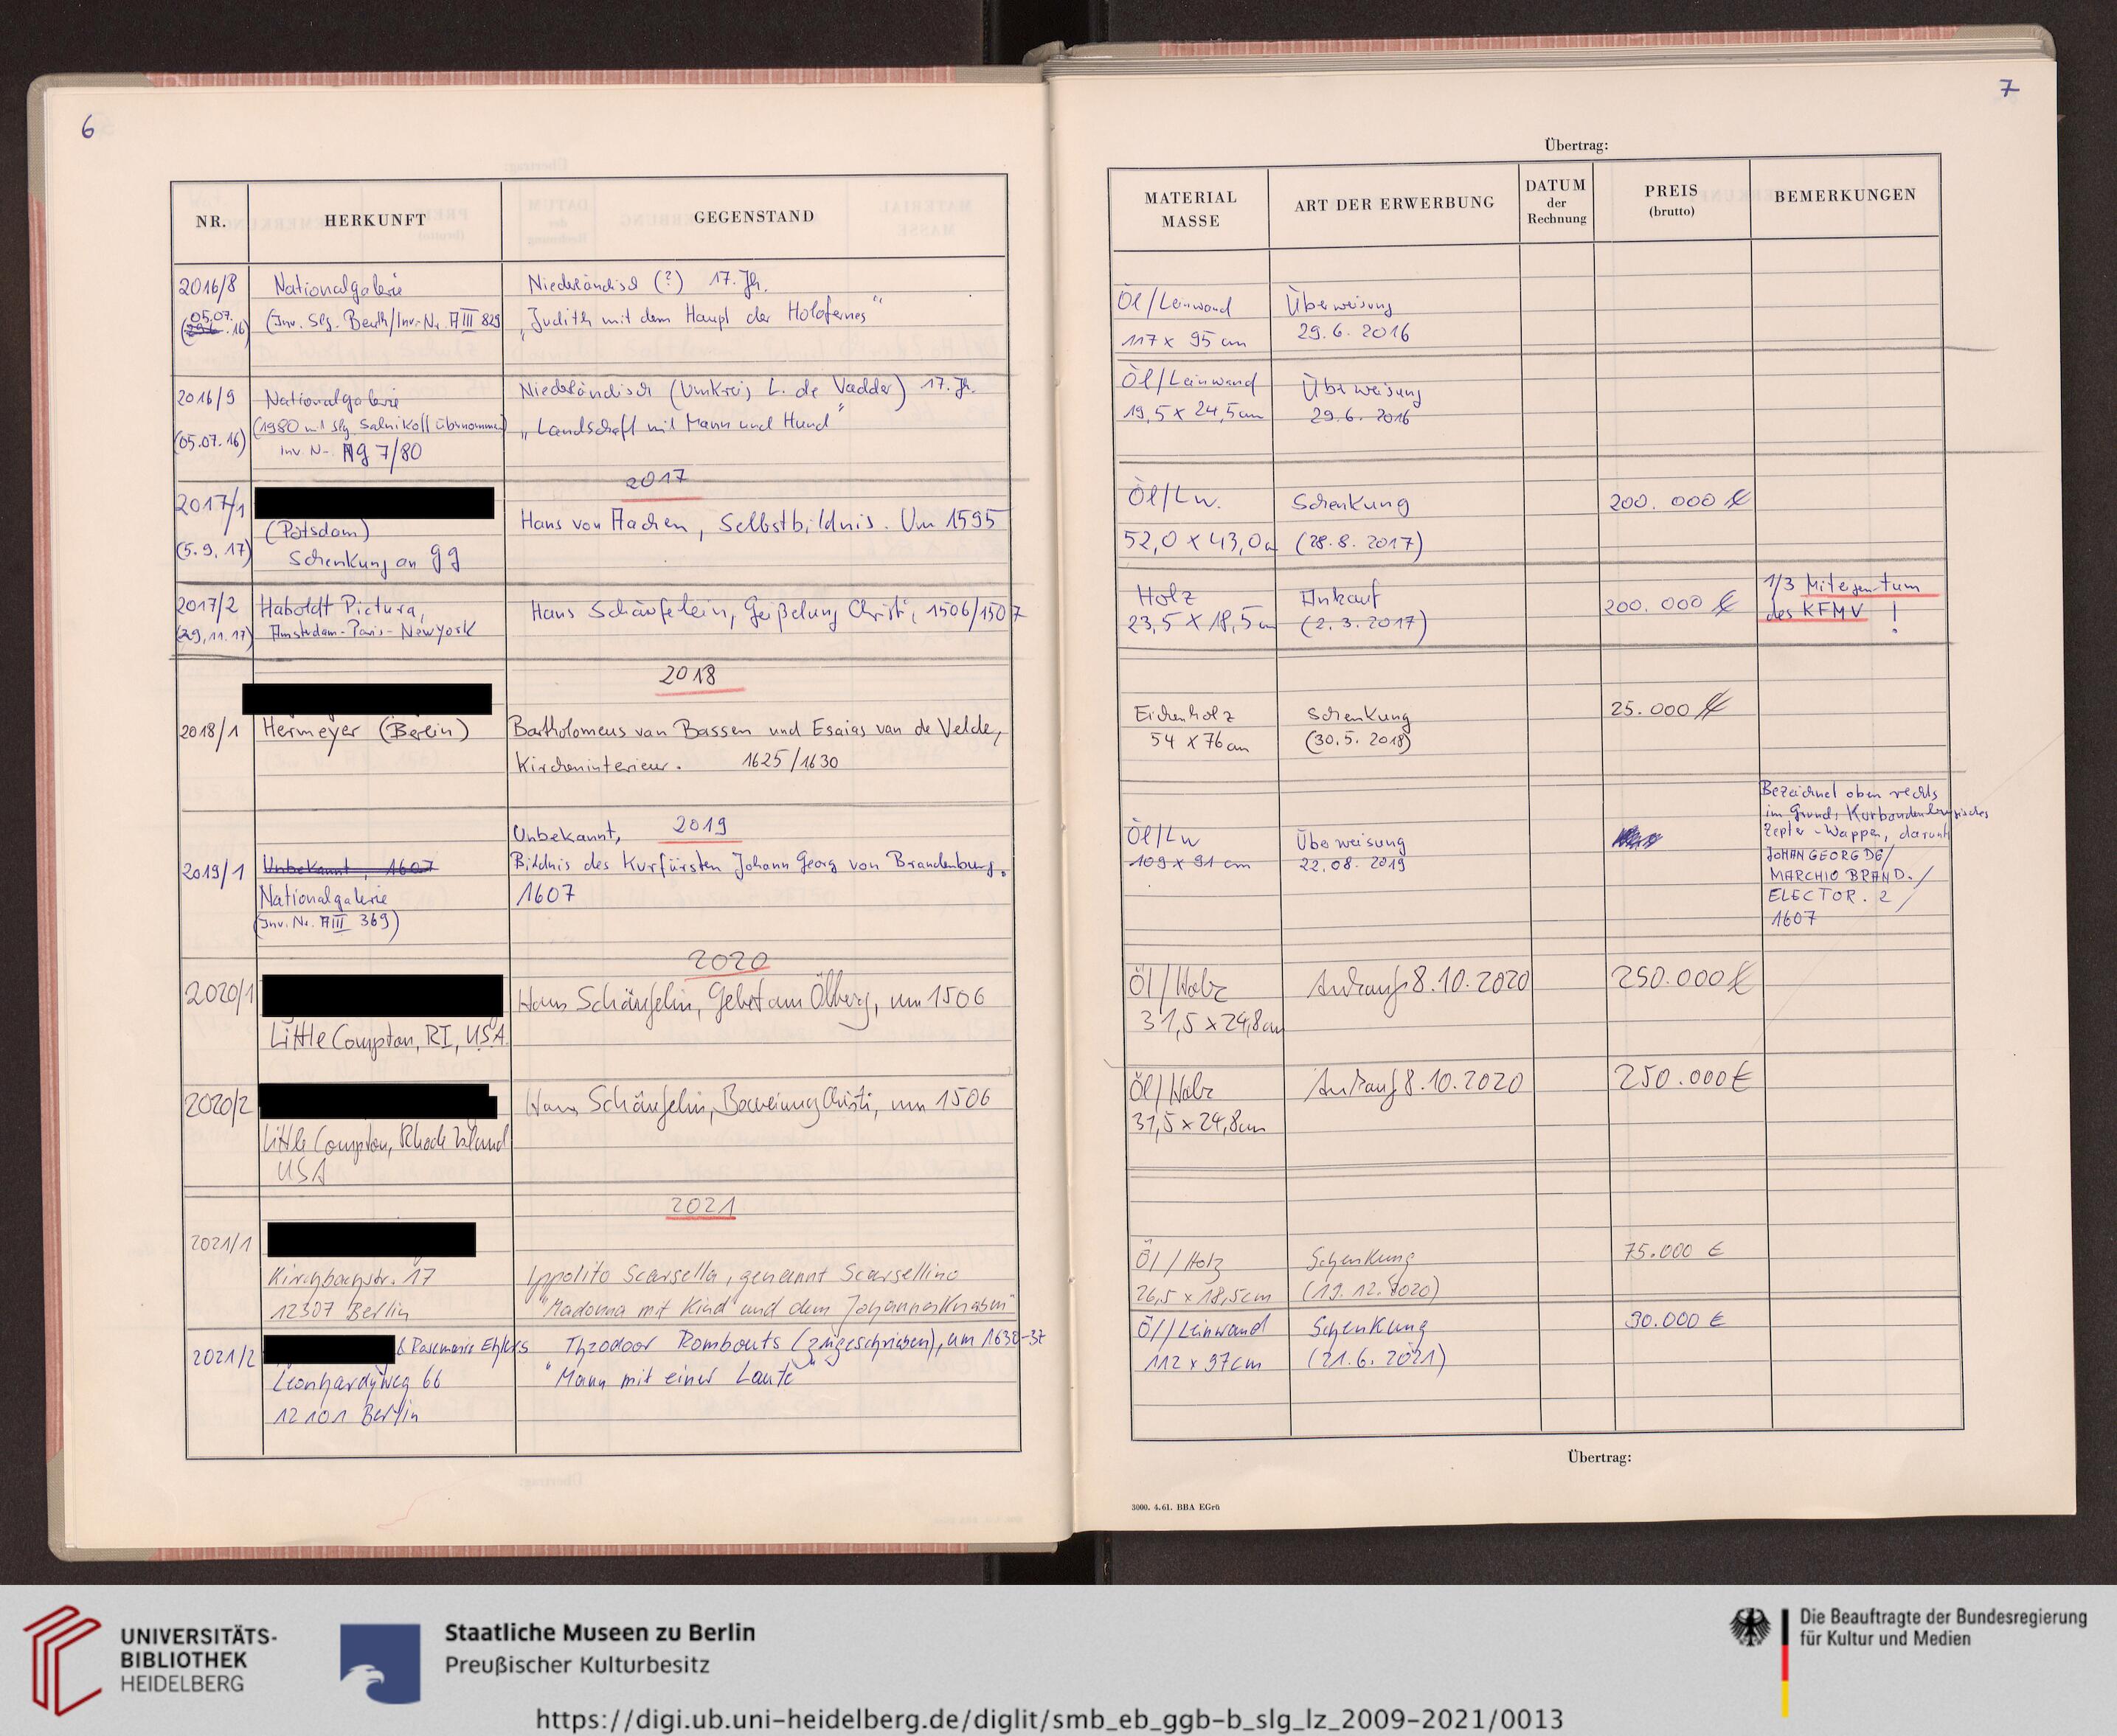 6
NR. HERKUNFT GEGENSTAND
2016/8 Nationalgalerie Niederländisch (?) 17. Jh.
(05.07.16) (Inv. Slg. Beuth/Inv.-Nr. A III 829) „Judith mit dem Haupt des Holofernes"
2016/9 Nationalgalerie Niederländisch (Umkreis L. de Vadder) 17. Jh.
(1980 mit Slg. Salnikoff übernommen) „Landschaft mit Mann und Hund"
(05.07.16) Inv. Nr. NG 7/80
2017
2017/1
(Potsdam) Hans von Aachen, Selbstbildnis. Um 1595
(5.9.17) Schenkung an GG
2017/2 Haboldt Pictura, Hans Schäufelein, Geißelung Christi, 1506/1507
(29.11.17) Amsterdam-Paris-New York
2018
2018/1 Hermeyer (Berlin) Bartholomeus van Bassen und Esaias van de Velde,
Kircheninterieur. 1625/1630
2019
Unbekannt,
2019/1 Unbekannt, 1607 Bildnis des Kurfürsten Johann Georg von Brandenburg.
Nationalgalerie 1607
(Inv. Nr. A III 369)
2020
2020/1 Hans Schäufelin, Gebet am Ölberg, um 1506
Little Compton, RI, USA
2020/2 Hans Schäufelin, Beweinung Christi, um 1506
Little Compton, Rhode Island
USA
2021
2021/1
Kirchbachstr. 17 Ippolito Scarsella, genannt Scarsellino
12307 Berlin "Madonna mit Kind und dem Johannesknaben"
2021/2 & Rosemarie Ehlers Theodoor Rombouts (zugeschrieben), um 1630-32
Leonhardyweg 66 "Mann mit einer Laute"
12101 Berlin
7
Übertrag:
MATERIAL MASSE ART DER ERWERBUNG DATUM der Rechnung PREIS (brutto) BEMERKUNGEN
Öl/Leinwand Überweisung
117 x 95 cm 29.6.2016
Öl/Leinwand Überweisung
19,5 x 24,5 cm 29.6.2016
Öl/Lw. Schenkung 200.000 €
52,0 x 43,0 cm (28.8.2017)
Holz Ankauf 200.000 € 1/3 Miteigentum
23,5 x 18,5 cm (2.3.2017) des KFMV !
Eichenholz Schenkung 25.000 €
54 x 76 cm (30.5.2018)
Bezeichnet oben rechts
im Grund: Kurbrandenburgisches
Öl/Lw Überweisung Zepter-Wappen, darunter
109 x 91 cm 22.08.2019 JOHAN GEORG DG/
MARCHIO BRAND./
ELECTOR. 2/
1607
Öl/Holz Ankauf 8.10.2020 250.000 €
31,5 x 24,8 cm
Öl/Holz Ankauf 8.10.2020 250.000 €
31,5 x 24,8 cm
Öl / Holz Schenkung 75.000 €
26,5 x 18,5 cm (19.12.2020)
Öl/Leinwand Schenkung 30.000 €
112 x 97 cm (21.6.2021)
Übertrag:
3000. 4.61. BBA EGrü
UNIVERSITÄTS-
BIBLIOTHEK
HEIDELBERG
Staatliche Museen zu Berlin
Preußischer Kulturbesitz
Die Beauftragte der Bundesregierung
für Kultur und Medien
https://digi.ub.uni-heidelberg.de/diglit/smb_eb_ggb-b_slg_lz_2009-2021/0013